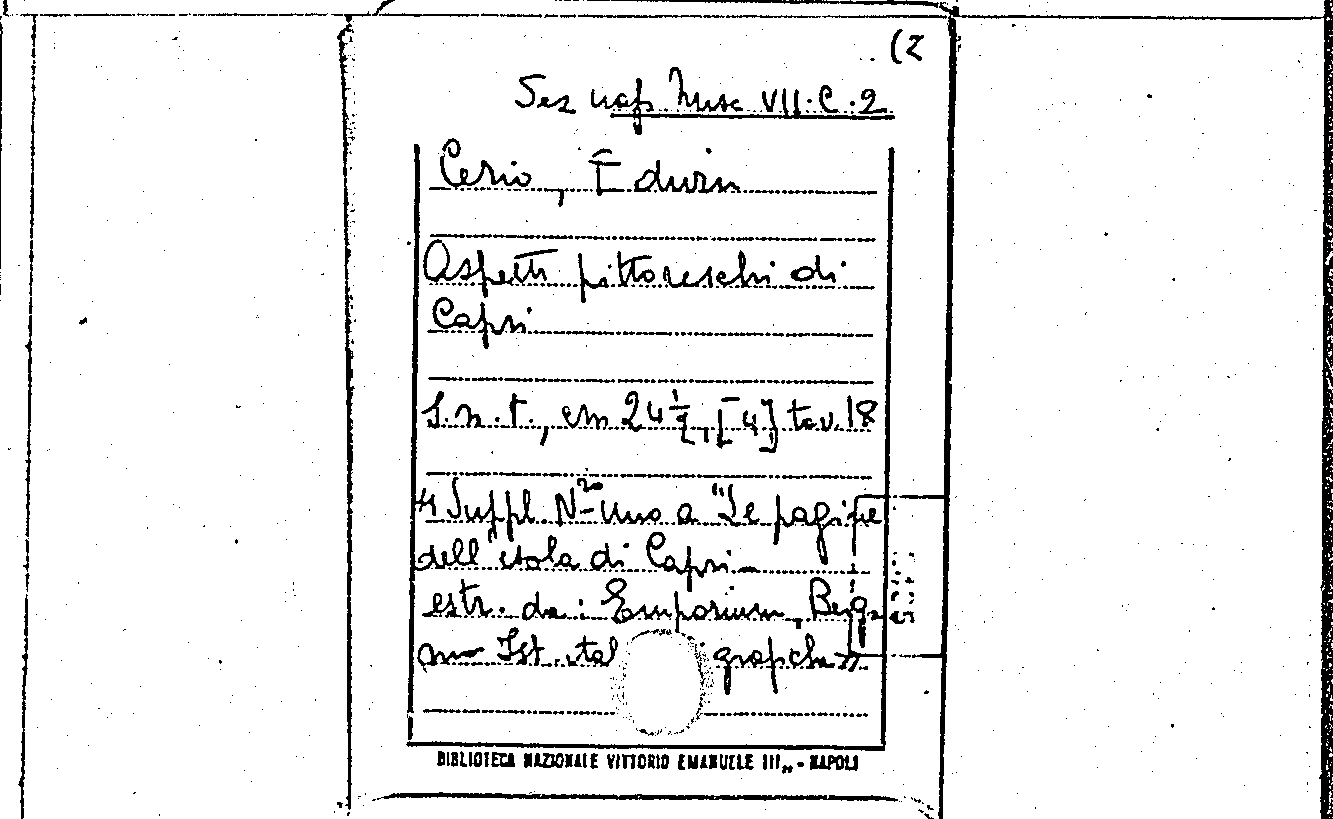 (2
Sez nap Misc VII.C.2
Cerio, Edwin
Aspetti pittoreschi di
Capri
S.n.t., cm 24 1/2, [4] tav. 18
Suppl No uno a "Le pagine
dell'isola di Capri
estr. da: Emporium, Berga
mo Ist. ital grafiche
BIBLIOTECA NAZIONALE VITTORIO EMANUELE III„ - NAPOLI